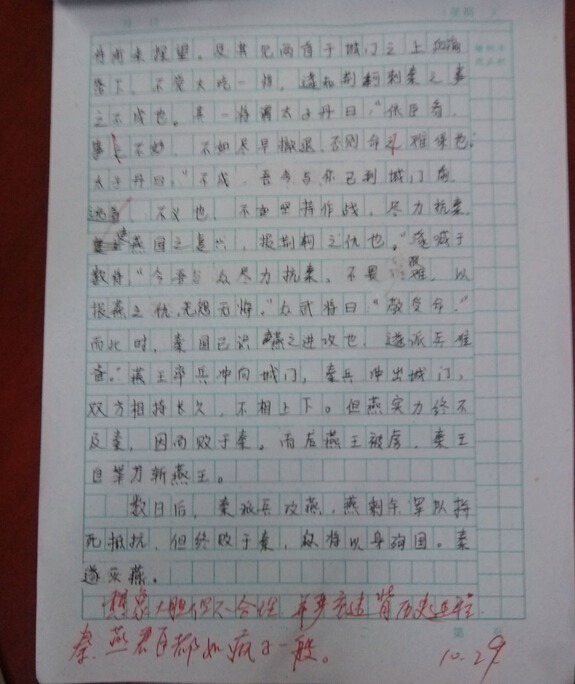 丹前来探望。及其见两首于城门之上
落下，不觉大吃一惊，遂知荆柯刺秦之事
之不成也。其一将谓太子丹曰：“依臣看，
事 不妙，不如尽早撤退，否则命 难保也。”
太子丹曰：“不成，吾今与你已到城门前，
逃 ，不义也，不如坚持作战，尽力抗秦，
燕国之复兴，报荆柯之仇也。”遂喊于
数将：“今吾 众尽力抗秦，不畏 难，以
报燕之仇，无怨无悔。”众武将曰：“敬受命。”
而此时，秦国已识燕之进攻也，遂派兵
燕王率兵冲向城门，秦兵冲出城门，
双方相持长久，不相上下。但燕实力终不
及秦，因而败于秦。而后燕王被虏，秦王
自举刀斩燕王。
数日后，秦派兵攻燕，燕剩余军队拼
死抵抗，但终败于秦，众将以身殉国。秦
遂灭燕。
想象大胆但不合理， 背历史进程，
秦、燕君臣都如疯子一般。
10.29